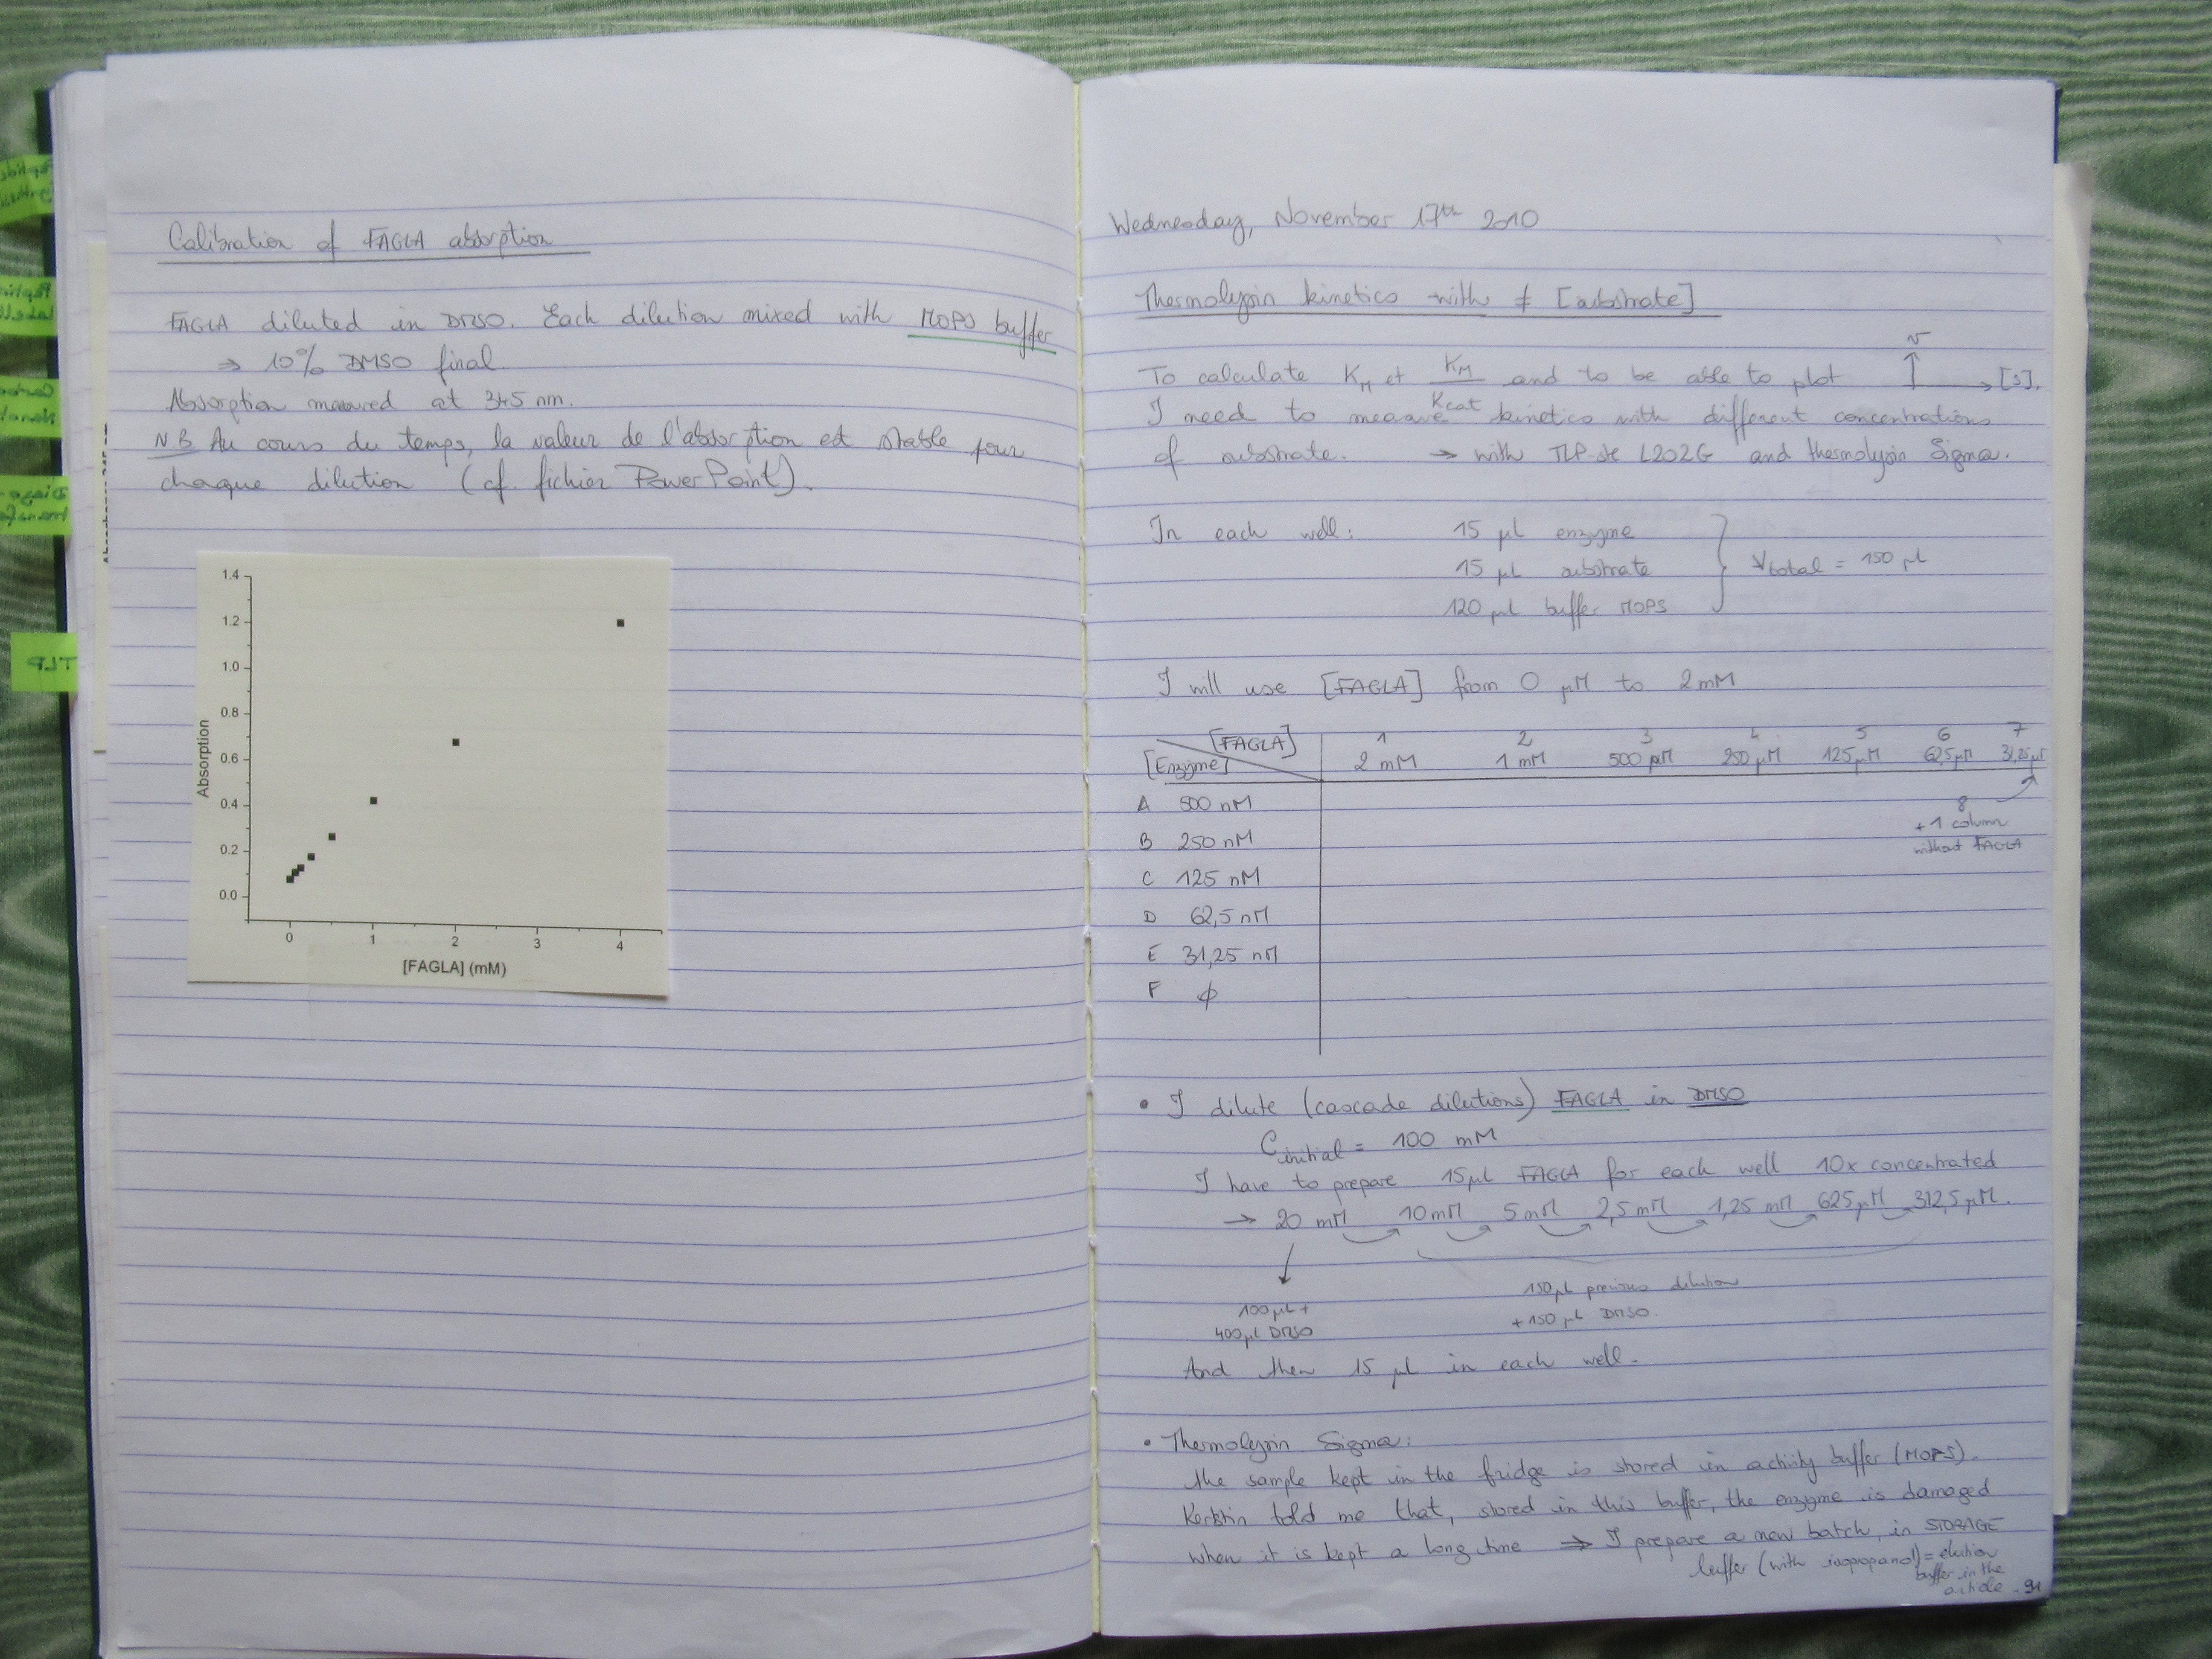 Calibration of FAGLA absorption
FAGLA diluted in DMSO. Each dilution mixed with MOPS buffer
⇒ 10% DMSO final.
Absorption measured at 345 nm.
NB Au cours du temps, la valeur de l'absorption est stable pour
chaque dilution (cf. fichier PowerPoint).
1.4
1.2
1.0
0.8
0.6
0.4
0.2
0.0
Absorption
0 1 2 3 4
[FAGLA] (mM)
TLP
Wednesday, November 17th 2010
Thermolysin kinetics with ≠ [substrate]
To calculate KM et KM/Kcat and to be able to plot v [S].
I need to measure kinetics with different concentrations
of substrate. → with TLP-ste L202G and thermolysin Sigma.
In each well: 15 µL enzyme
15 µL substrate
120 µL buffer MOPS
Vtotal = 150 µL
I will use [FAGLA] from 0 µM to 2 mM
1 2 3 4 5 6 7
[FAGLA] 2 mM 1 mM 500 µM 250 µM 125 µM 62,5 µM 31,25 µM
[Enzyme]
A 500 nM
8
+ 1 column
without FAGLA
B 250 nM
C 125 nM
D 62,5 nM
E 31,25 nM
F ϕ
• I dilute (cascade dilutions) FAGLA in DMSO
Cinitial = 100 mM
I have to prepare 15 µL FAGLA for each well 10x concentrated
→ 20 mM 10 mM 5 mM 2,5 mM 1,25 mM 625 µM 312,5 µM.
100 µL +
400 µL DMSO
150 µL previous dilution
+ 150 µL DMSO.
And then 15 µL in each well.
• Thermolysin Sigma:
the sample kept in the fridge is stored in activity buffer (MOPS).
Kerstin told me that, stored in this buffer, the enzyme is damaged
when it is kept a long time ⇒ I prepare a new batch, in STORAGE
buffer (with isopropanol) = elution
buffer in the
article.
91